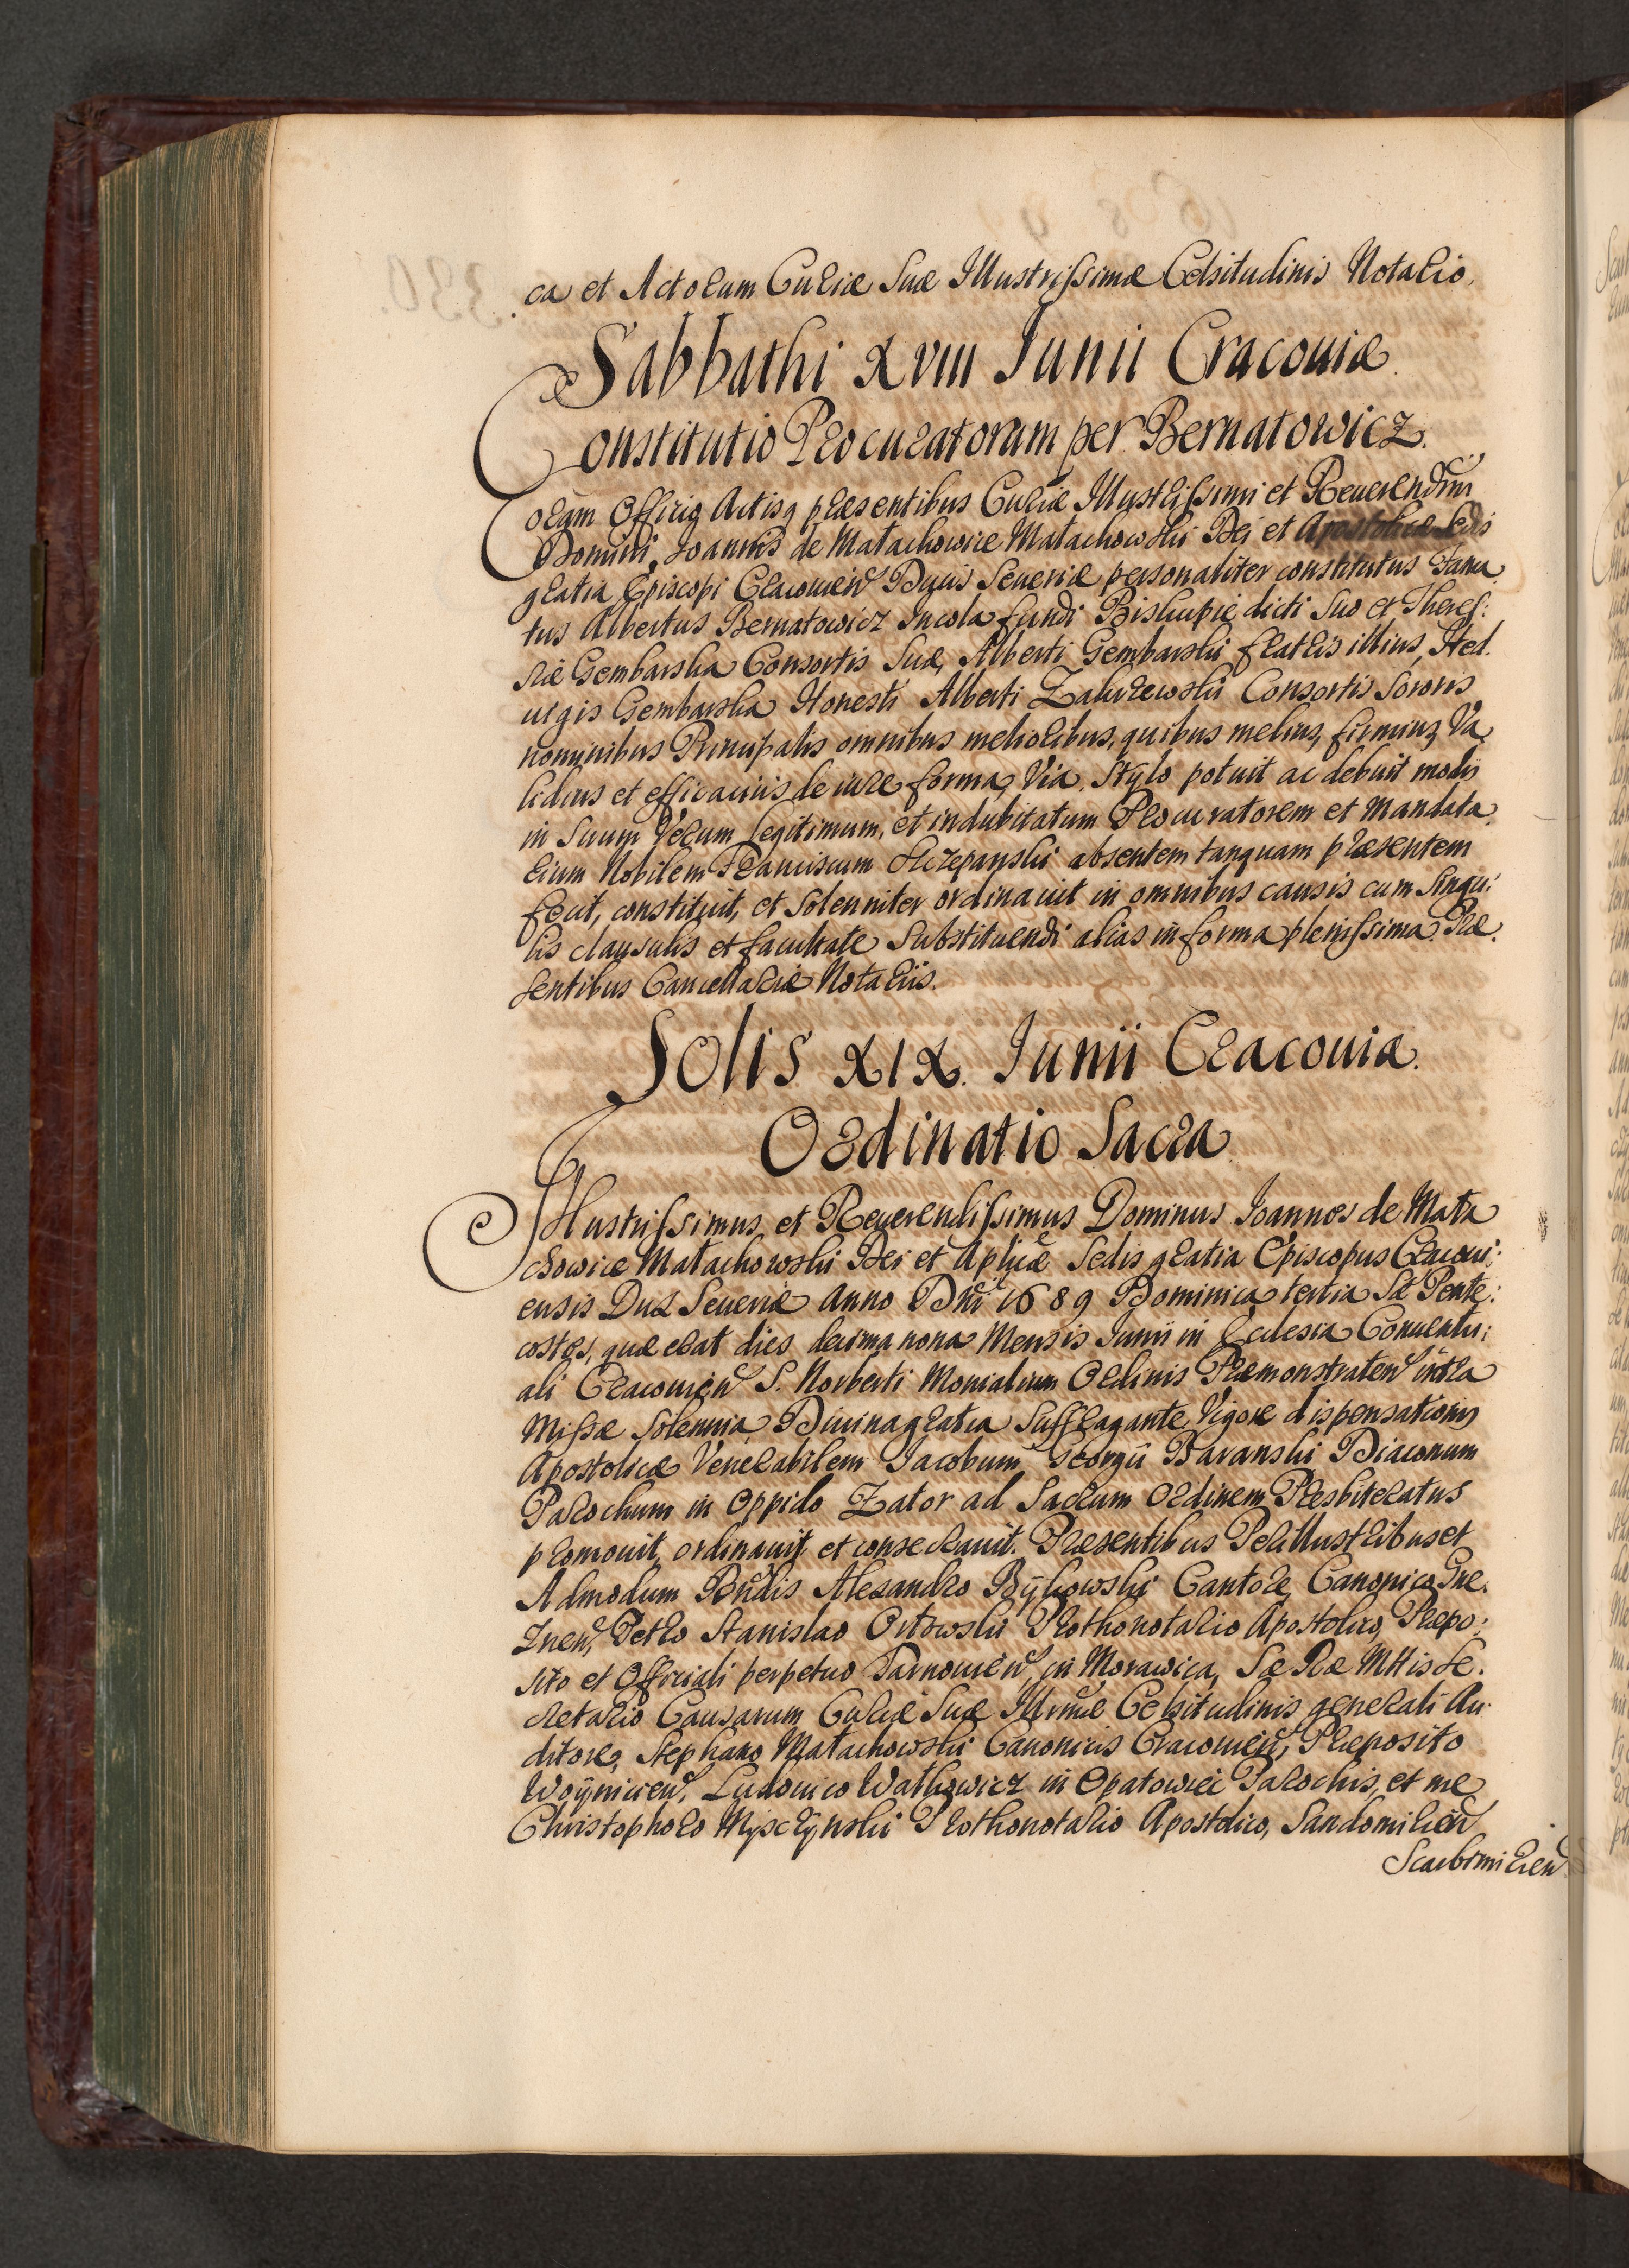 ca et Actorum Curiæ Suæ Illustrissimæ Celsitudinis Notario.
Sabbathi XVIII Iunii Cracouiæ.
Constitutio Procuratorum per Bernatowicz.
Coram Officio Actisq præsentibus Curiæ Illustrissimi et Reuerendmi
Domini, Ioannis de Małachowice Małachowski Dei et Apostolicæ Sedis
gratia Episcopi Cracouien Ducis Seueriæ personaliter constitutus Fama
tus Albertus Bernatowicz Incola fundi Biskupie dicti Suo et Theres:
siæ Gembarska Consortis Suæ, Alberti Gembarski fratris illius, Hed
uigis Gembarska Honesti Alberti Zakrzewski Consortis Sororis
nominibus Principalis omnibus melioribus, quibus melius, firmius, Va
lidius et efficaciùs de iure forma, Via, Stylo potuit ac debuit modis
in Suum Verum legitimum, et indubitatum Procuratorem et Mandata
rium Nobilem Franciscum Szczepanski absentem tanquam præsentem
fecit, constituit, et Solenniter ordinauit in omnibus causis cum Singu:
lis clausulis et facultate Substituendi alias in forma plenissima. Præ
sentibus Cancellariæ Notariis.
Solis XIX. Iunii Cracouiæ.
Ordinatio Sacra
Illustrissimus et Reuerendissimus Dominus Ioannes de Mała
chowice Małachowski Dei et Aplicæ Sedis gratia Episcopus Cracoui:
ensis Dux Seueriæ Anno Dni 1689 Dominica tertia Sæ Pente:
costes, quæ erat dies decima nona Mensis Iunii in Ecclesia Conuentu:
ali Cracouien S. Norberti Monialium Ordinis Præmonstraten intra
Missæ Solennia Diuina gratia Suffragante Vigore dispensationis
Apostolicæ Venerabilem Iacobum Georgii Baranski Diaconum
Parochum in Oppido Zator ad Sacrum Ordinem Presbiteratus
promouit, ordinauit et consecrauit. Præsentibus Perillustribus et
Admodum Rndis Alexandro Bÿkowski Cantore, Canonico Gne
znen, Petro Stanislao Orłowski Prothonotario Apostolico, Præpo:
sito et Officiali perpetuo Tarnouien, in Morawica, Sæ Ræ Mttis Se
cretario Causarum Curiæ Suæ Illrmæ Celsitudinis generali Au
ditore, Stephano Małachowski Canonicis Cracouien, Præposito
Woÿnicien, Ludouico Wałkowicz in Opatowiec Parochis, et me
Christophoro Mysczÿnski Prothonotario Apostolico, Sandomirien
Scarbimirien